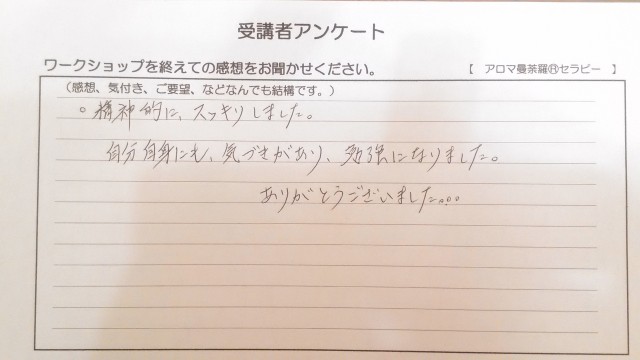 受講者アンケート
ワークショップを終えての感想をお聞かせください。
【 アロマ曼荼羅Ⓡセラピー 】
(感想、気付き、ご要望、などなんでも結構です。)
○ 精神的に、スッキリしました。
自分自身にも、気づきがあり、勉強になりました。
ありがとうございました。。。